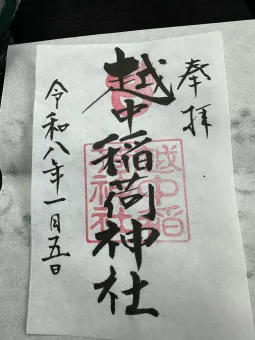 奉拝
越中稲荷神社
令和八年一月五日
越中稲
荷神社